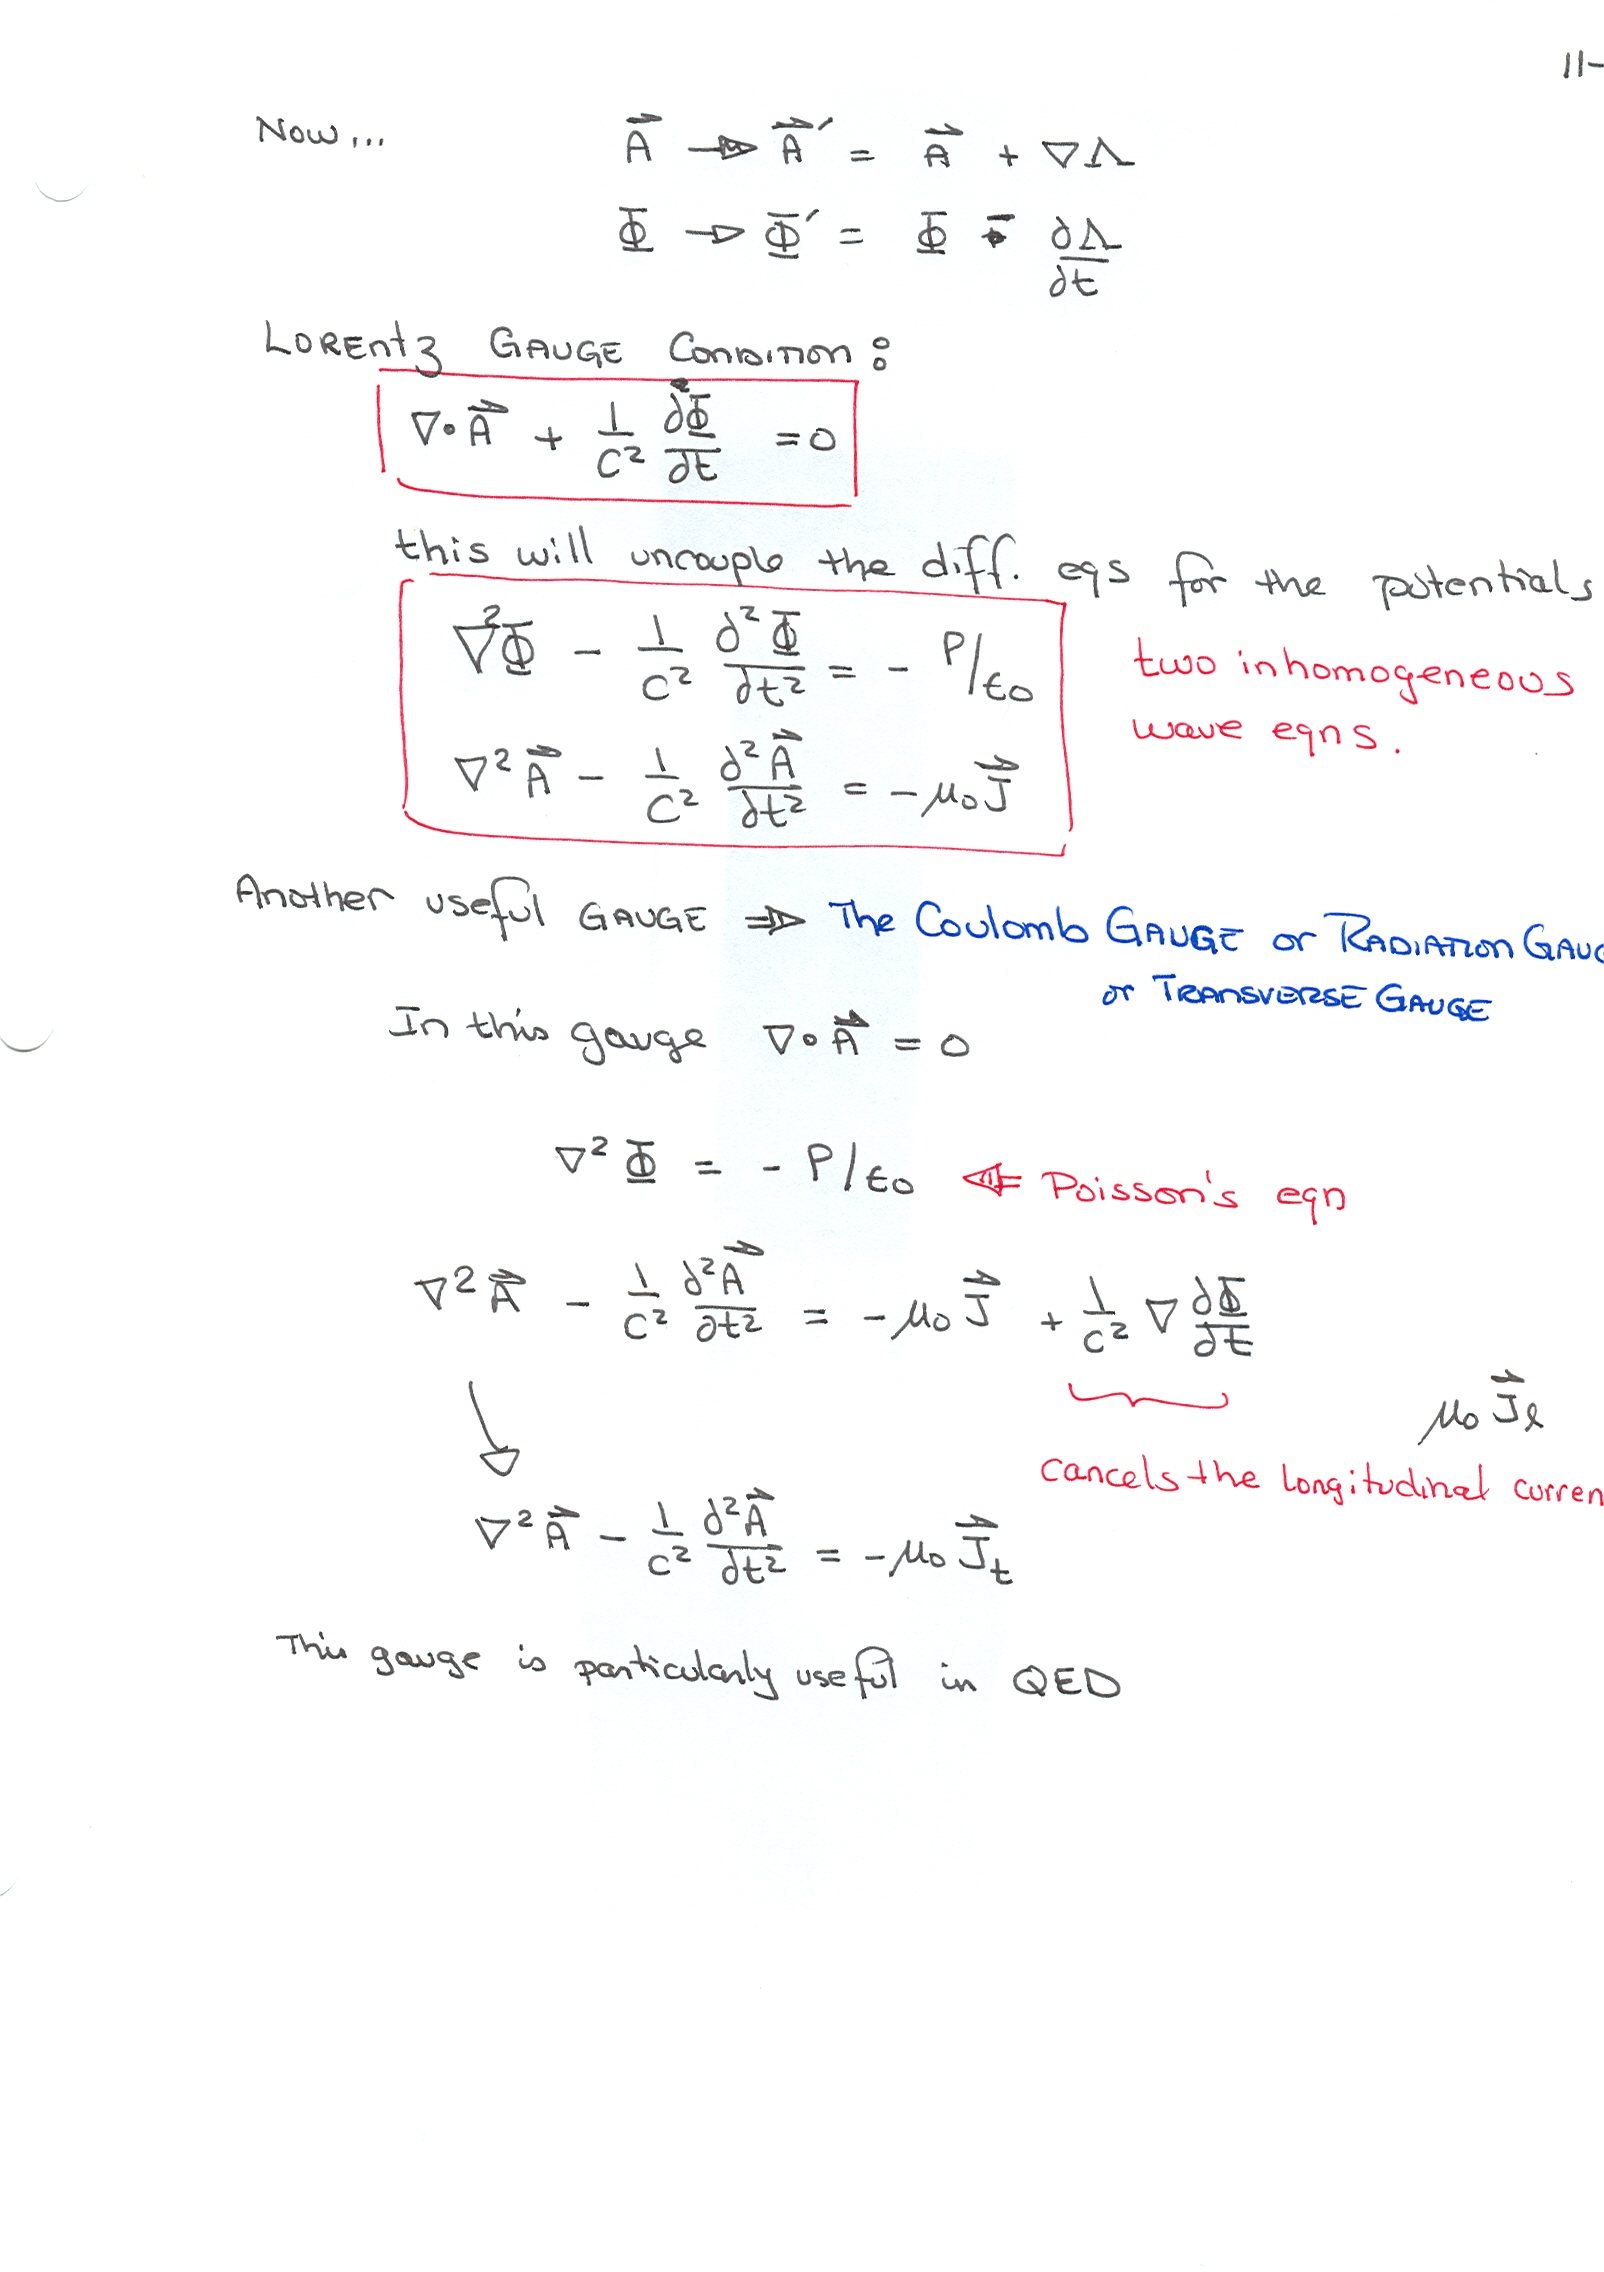 11-
Now... A⃗ → A⃗′ = A⃗ + ∇Λ
Φ → Φ′ = Φ - ∂Λ/∂t
LORENTZ GAUGE CONDITION:
∇·A⃗ + 1/C² ∂Φ/∂t = 0
this will uncouple the diff. eqs for the potentials
∇²Φ - 1/C² ∂²Φ/∂t² = - ρ/ϵ₀
two inhomogeneous
wave eqns.
∇²A⃗ - 1/C² ∂²A⃗/∂t² = -μ₀J⃗
Another useful GAUGE ⇒ The Coulomb GAUGE or RADIATION GAUG
or TRANSVERSE GAUGE
In this gauge ∇·A⃗ = 0
∇²Φ = - ρ/ϵ₀ ⇐ Poisson's eqn
∇²A⃗ - 1/C² ∂²A⃗/∂t² = -μ₀J⃗ + 1/C² ∇ ∂Φ/∂t
μ₀J⃗ₗ
cancels the longitudinal curren
∇²A⃗ - 1/C² ∂²A⃗/∂t² = -μ₀J⃗ₜ
This gauge is particularly useful in QED